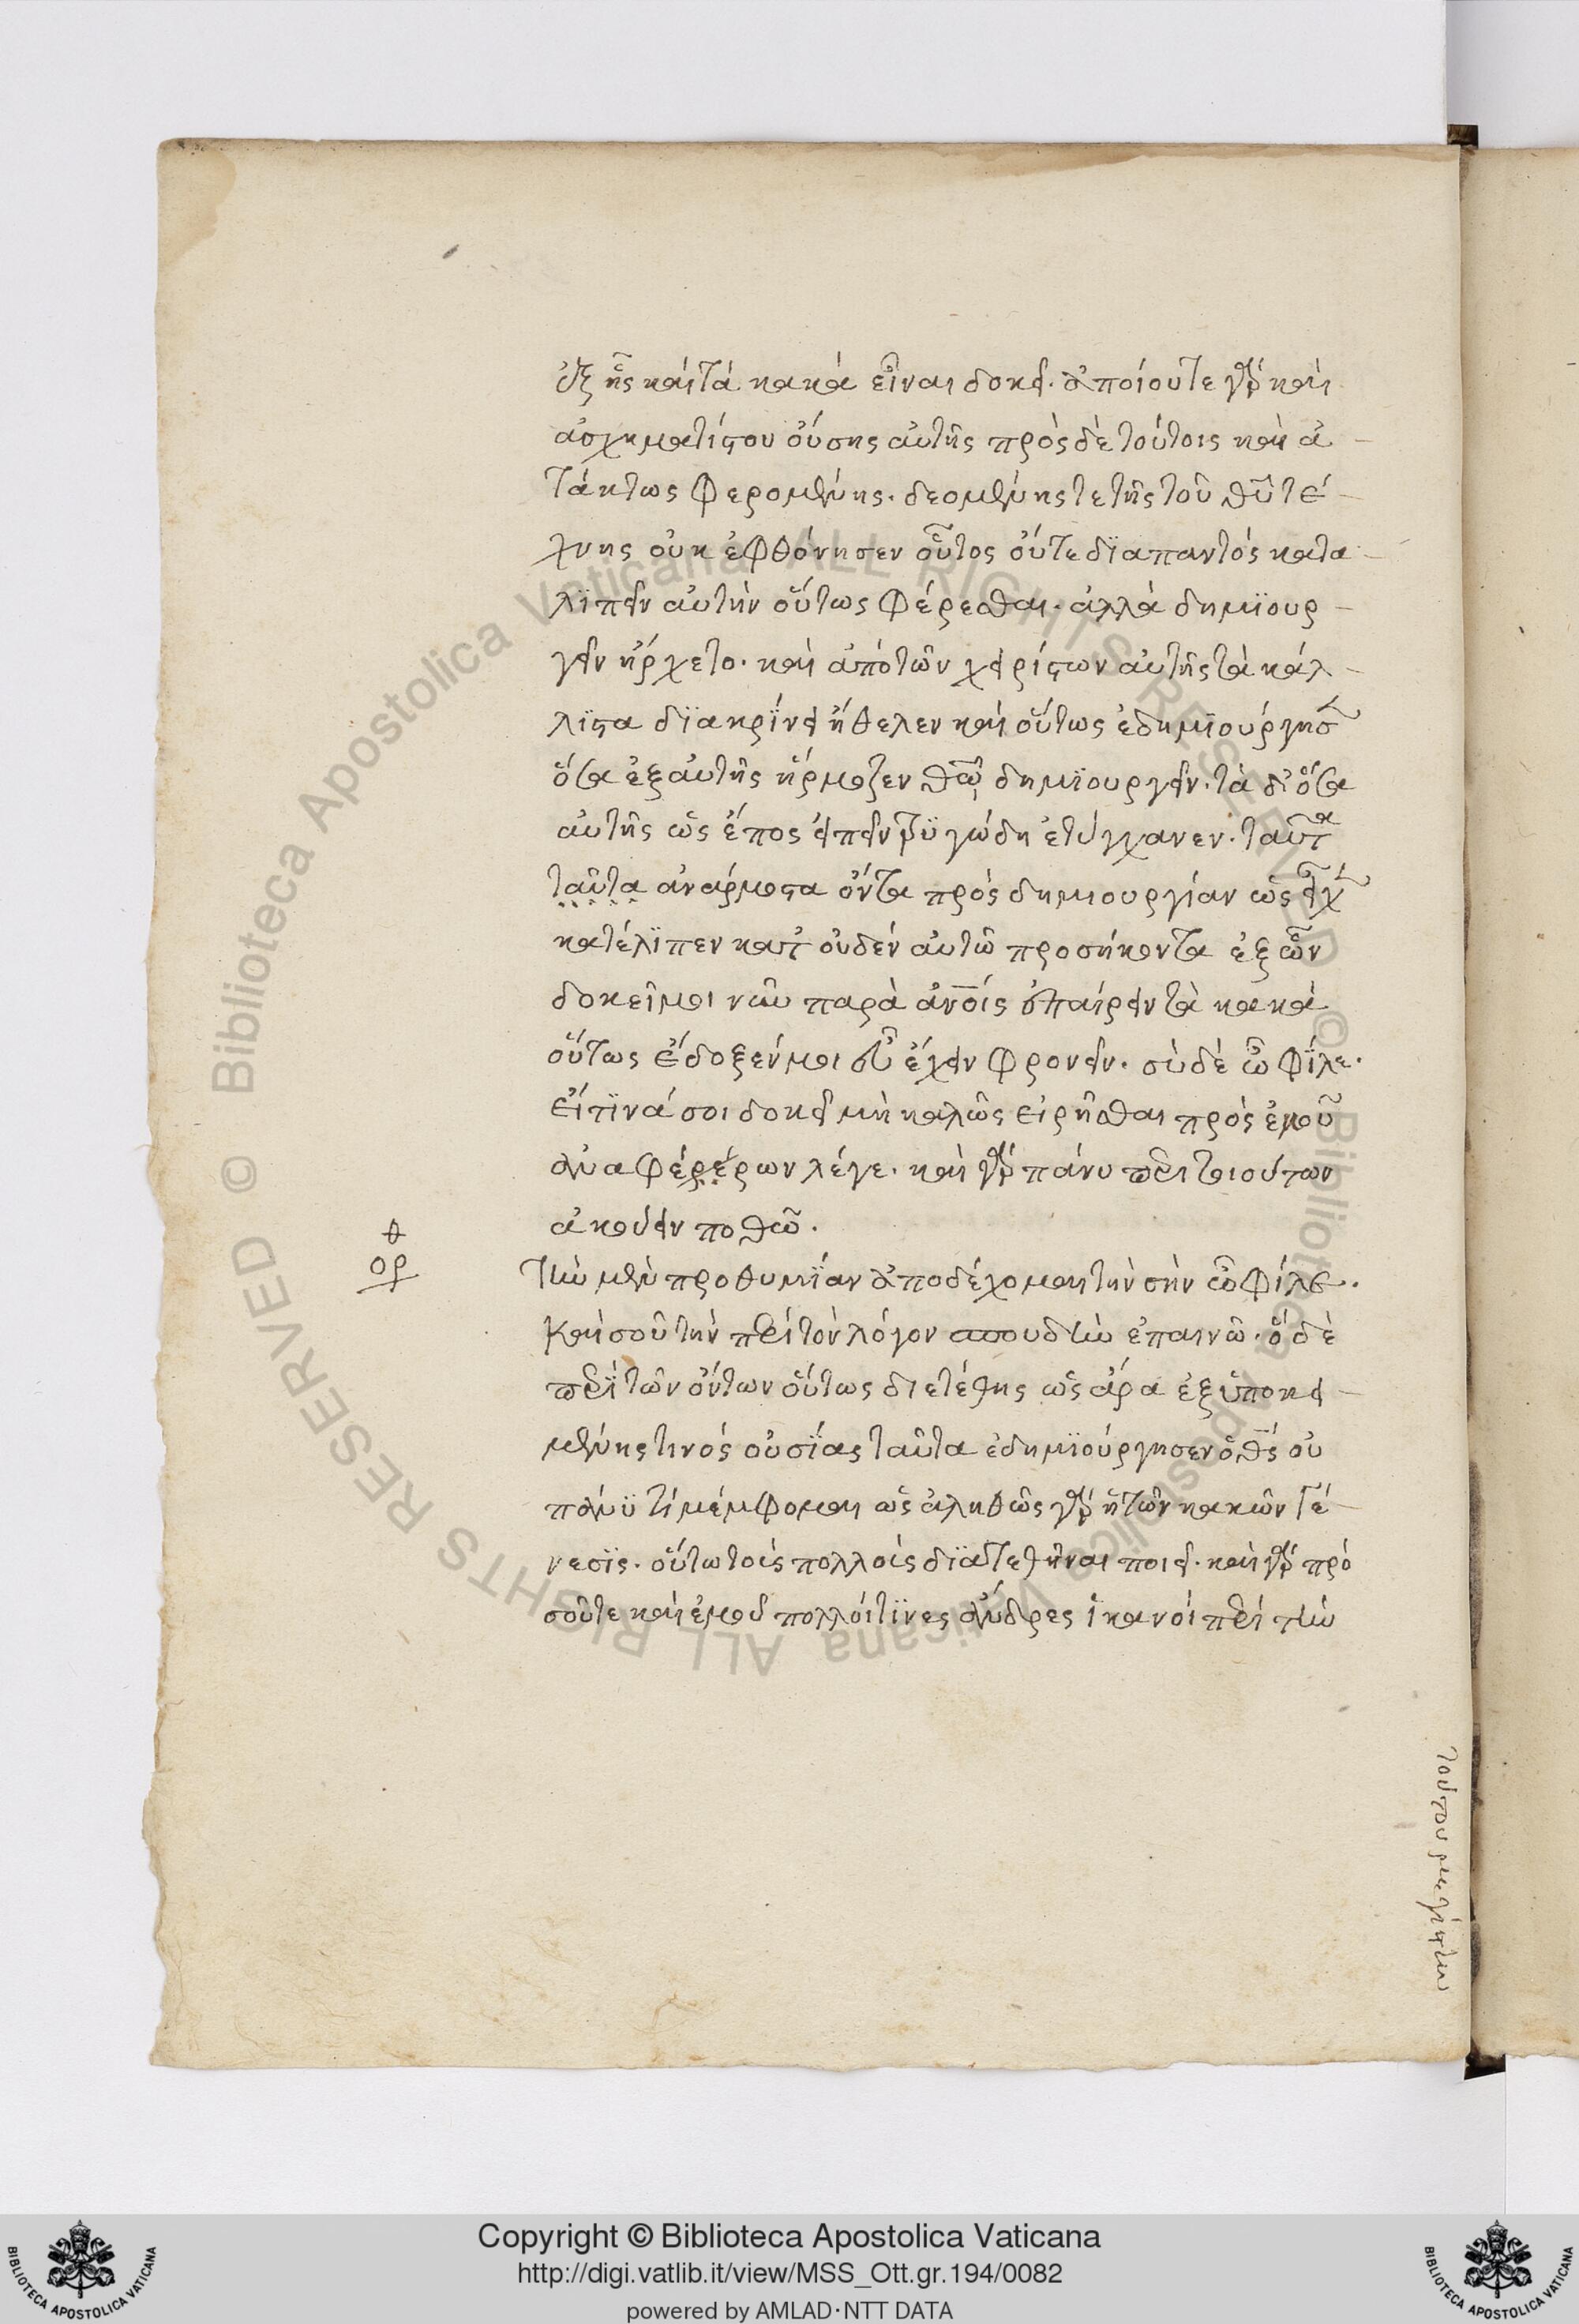 ἐξ ἧς καὶ τὰ κακὰ εἶναι δοκεῖ. ἀποίου τε γὰρ καὶ
ἀσχηματίστου οὔσης αὐτῆς πρὸς δὲ τούτοις καὶ ἀ-
τάκτως φερομένης. δεομένης τε τῆς τοῦ θῦ τέ-
χνης οὐκ ἐφθόνησεν οὗτος οὔτε διαπαντὸς κατα-
λϊπεῖν αὐτὴν οὕτως φέρεσθαι. ἀλλὰ δημϊουρ-
γεῖν ἤρχετο. καὶ ἀπὸ τῶν χειρίστων αὐτῆς τὰ κάλ-
λϊστα δϊακρῖνει ἤθελεν καὶ οὕτως ἐδημϊούργησ
ὅσα ἐξ αὐτῆς ἥρμοζεν θῶ δημϊουργεῖν. τὰ δ' ὅσα
αὐτῆς ὡς ἔπος εἰπεῖν τρϋγώδη ἐτύγχανεν. ταῦτα
ταῦτα ἀνάρμοστα ὄντα πρὸς δημιουργίαν ὡς εἶχ
κατέλϊπεν κατ' οὐδὲν αὐτῶ προσήκοντα ἐξ ὧν
δοκεῖ μοι νῦν παρὰ ἀνοις ἐπαίρειν τὰ κακὰ
οὕτως ἔδοξέν μοι εὖ ἔχειν φρονεῖν. σὺ δὲ ὦ φίλε.
εἴ τϊνά σοι δοκεῖ μὴ καλῶς εἰρῆσθαι πρὸς ἐμοῦ
ἀναφέρέρων λέγε. καὶ γὰρ πάνυ περὶ τοιούτων
ἀκούειν ποθῶ.
ορθ
Τὴν μὲν προθυμϊαν ἀποδέχομαι τὴν σὴν ὦ φίλε.
Καὶ σοῦ τὴν περὶ τὸν λόγον σπουδὴν ἐπαινῶ. ὅ δὲ
περὶ τῶν ὄντων οὕτως διετέθης ὡς ἄρα ἐξ ὑποκει-
μένης τινὸς οὐσίας ταῦτα ἐδημϊούργησεν ὁ θς οὐ
πάνϋ τι μέμφομαι ὡς ἀληθῶς γὰρ ἡ τῶν κακῶν γέ-
νεσϊς. οὕτω τοῖς πολλοῖς δϊατεθῆναι ποιεῖ. καὶ γὰρ πρὸ
σοῦ τε καὶ ἐμοῦ πολλοί τϊνες ἄνδρες ἱκανοὶ περὶ τὴν